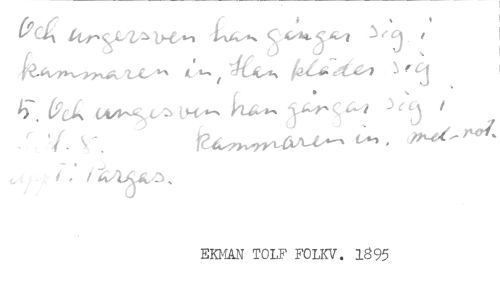 Och ungersven han gångar sig i
kammaren in, Han kläder sig
5. Och ungersven han gångar sig i
kammaren in. mel-not.
uppt: Pargas.
EKMAN TOLF FOLKV. 1895